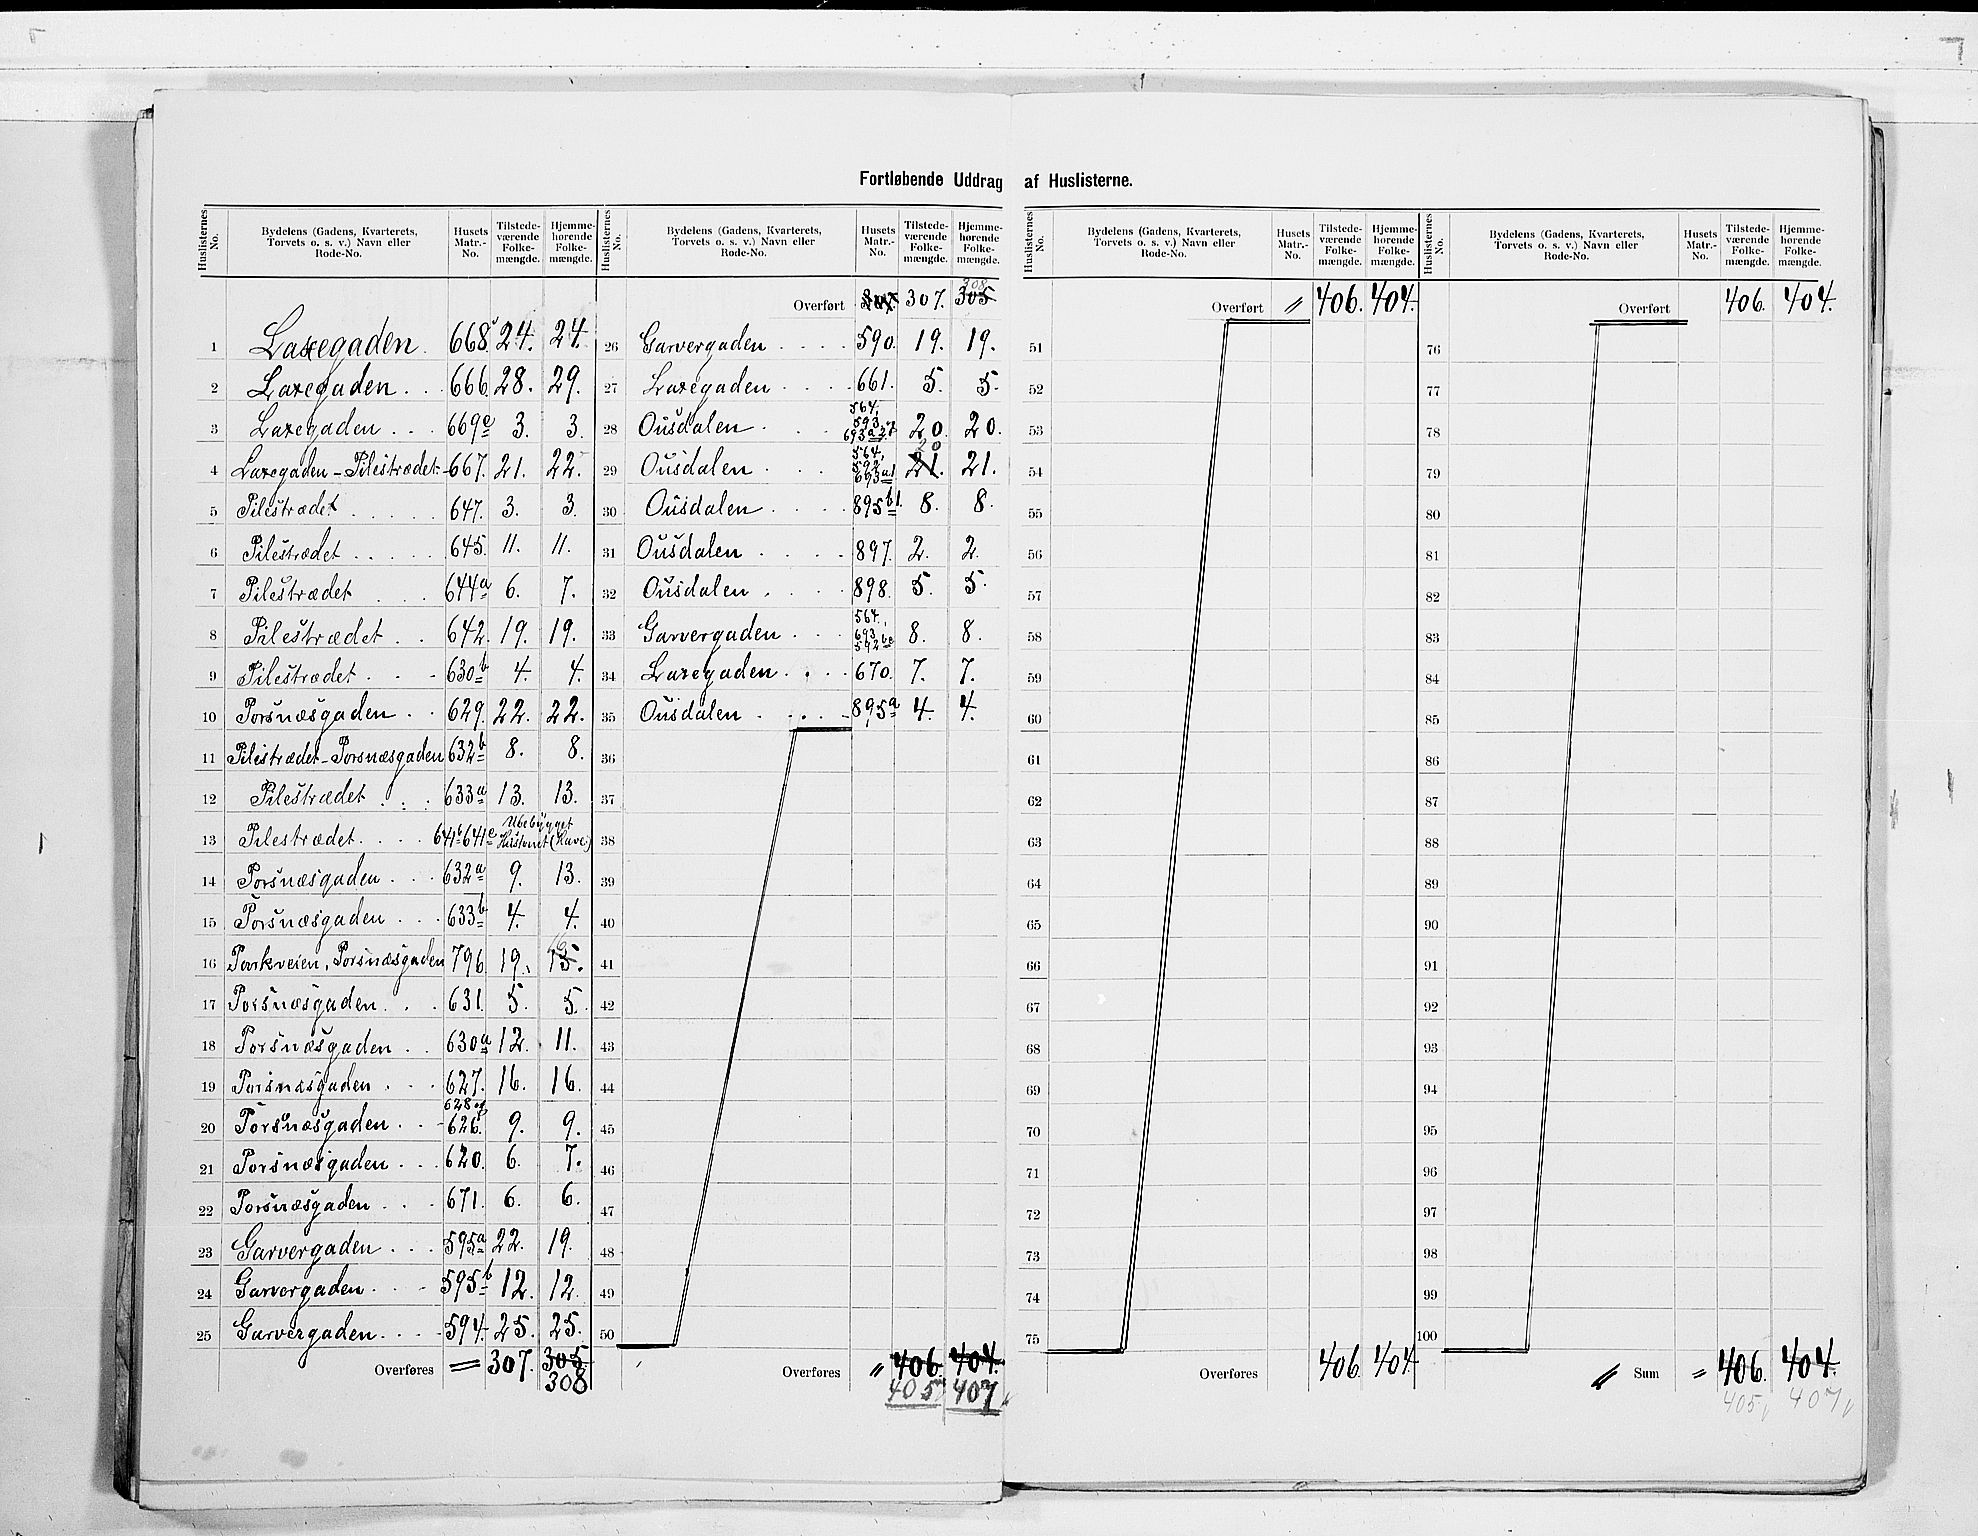 Fortløbende Uddrag af Huslisterne.
Huslisternes No. | Bydelens (Gadens, Kvarterets, Torvets o. s. v.) Navn eller Rode-No. | Husets Matr.-No. | Tilstede-værende Folke-mængde. | Hjemme-hørende Folke-mængde.
1 Laxegaden. 668. 24. 24.
2 Laxegaden . . . 666. 28. 29.
3 Laxegaden . . . 669e 3. 3.
4 Laxegaden - Pilestrædet 667. 21. 22.
5 Pilestrædet . . . . . 647. 3. 3.
6 Pilestrædet . . . . . 645. 11. 11.
7 Pilestrædet . . . 644a 6. 7.
8 Pilestrædet . . 642. 19. 19.
9 Pilestrædet . . - 630b 4. 4.
10 Porsnæsgaden . . 629. 22. 22.
11 Pilestrædet - Porsnæsgaden 632b 8. 8.
12 Pilestrædet . . . 633a 13. 13.
13 Pilestrædet . . . . 641b 641c Ubebygget Hustomt (Have)
14 Porsnæsgaden . . . 632a 9. 13.
15 Porsnæsgaden . . . 633b 4. 4.
16 Parkveien, Porsnæsgaden 796 19. 15.
17 Porsnæsgaden . . . 631. 5. 5.
18 Porsnæsgaden . . 630a 12. 11.
19 Porsnæsgaden . . . 627. 16. 16.
20 Porsnæsgaden . . - 628 og 626. 9. 9.
21 Porsnæsgaden . . . 620. 6. 7.
22 Porsnæsgaden . . . 671. 6. 6.
23 Garvergaden . . . 595a 22. 19.
24 Garvergaden . . - 595b 12. 12.
25 Garvergaden . . . . 594. 25. 25.
Overføres 307. 305
308
Huslisternes No. | Bydelens (Gadens, Kvarterets, Torvets o. s. v.) Navn eller Rode-No. | Husets Matr.-No. | Tilstede-værende Folke-mængde. | Hjemme-hørende Folke-mængde.
308
Overført 307. 305
26 Garvergaden . . . . 590. 19. 19.
27 Laxegaden . . . . 661. 5. 5.
28 Ousdalen . . 564, 593, 20. 20.
29 Ousdalen . . 564, 592 693a1 21. 20 21.
30 Ousdalen . . . . 895b1. 8. 8.
31 Ousdalen . . . - 897. 2. 2.
32 Ousdalen . . . . 898. 5. 5.
33 Garvergaden . . . 564, 693, 592bc 8. 8.
34 Laxegaden . . . 670. 7. 7.
35 Ousdalen . . . . - 895a 4. 4.
36
37
38
39
40
41
42
43
44
45
46
47
48
49
50
Overføres 〃 406. 404.
405 407
Huslisternes No. | Bydelens (Gadens, Kvarterets, Torvets o. s. v.) Navn eller Rode-No. | Husets Matr.-No. | Tilstede-værende Folke-mængde. | Hjemme-hørende Folke-mængde.
Overført 〃 406. 404.
51
52
53
54
55
56
57
58
59
60
61
62
63
64
65
66
67
68
69
70
71
72
73
74
75
Overføres 406. 404
Huslisternes No. | Bydelens (Gadens, Kvarterets, Torvets o. s. v.) Navn eller Rode-No. | Husets Matr.-No. | Tilstede-værende Folke-mængde. | Hjemme-hørende Folke-mængde.
Overført 406. 404.
76
77
78
79
80
81
82
83
84
85
86
87
88
89
90
91
92
93
94
95
96
97
98
99
100
〃 Sum 〃 406. 404.
405, 407,